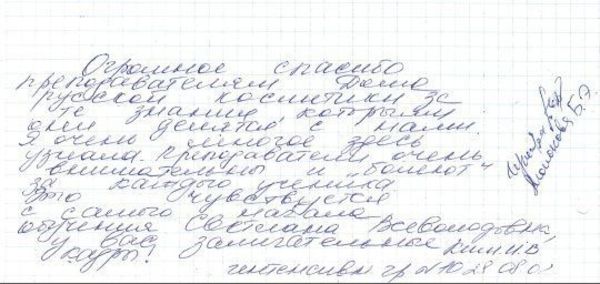 Огромное спасибо
преподавателям Дома
русской косметики за
те знания, которыми
они делятся с нами.
Я очень многое здесь
узнала. Преподаватели очень
внимательны и "болеют"
за каждого ученика
Это чувствуется
с самого начала
обучения Светлана Всеволодовна,
у вас замечательные
кадры!
интенсивн гр №10 28 08